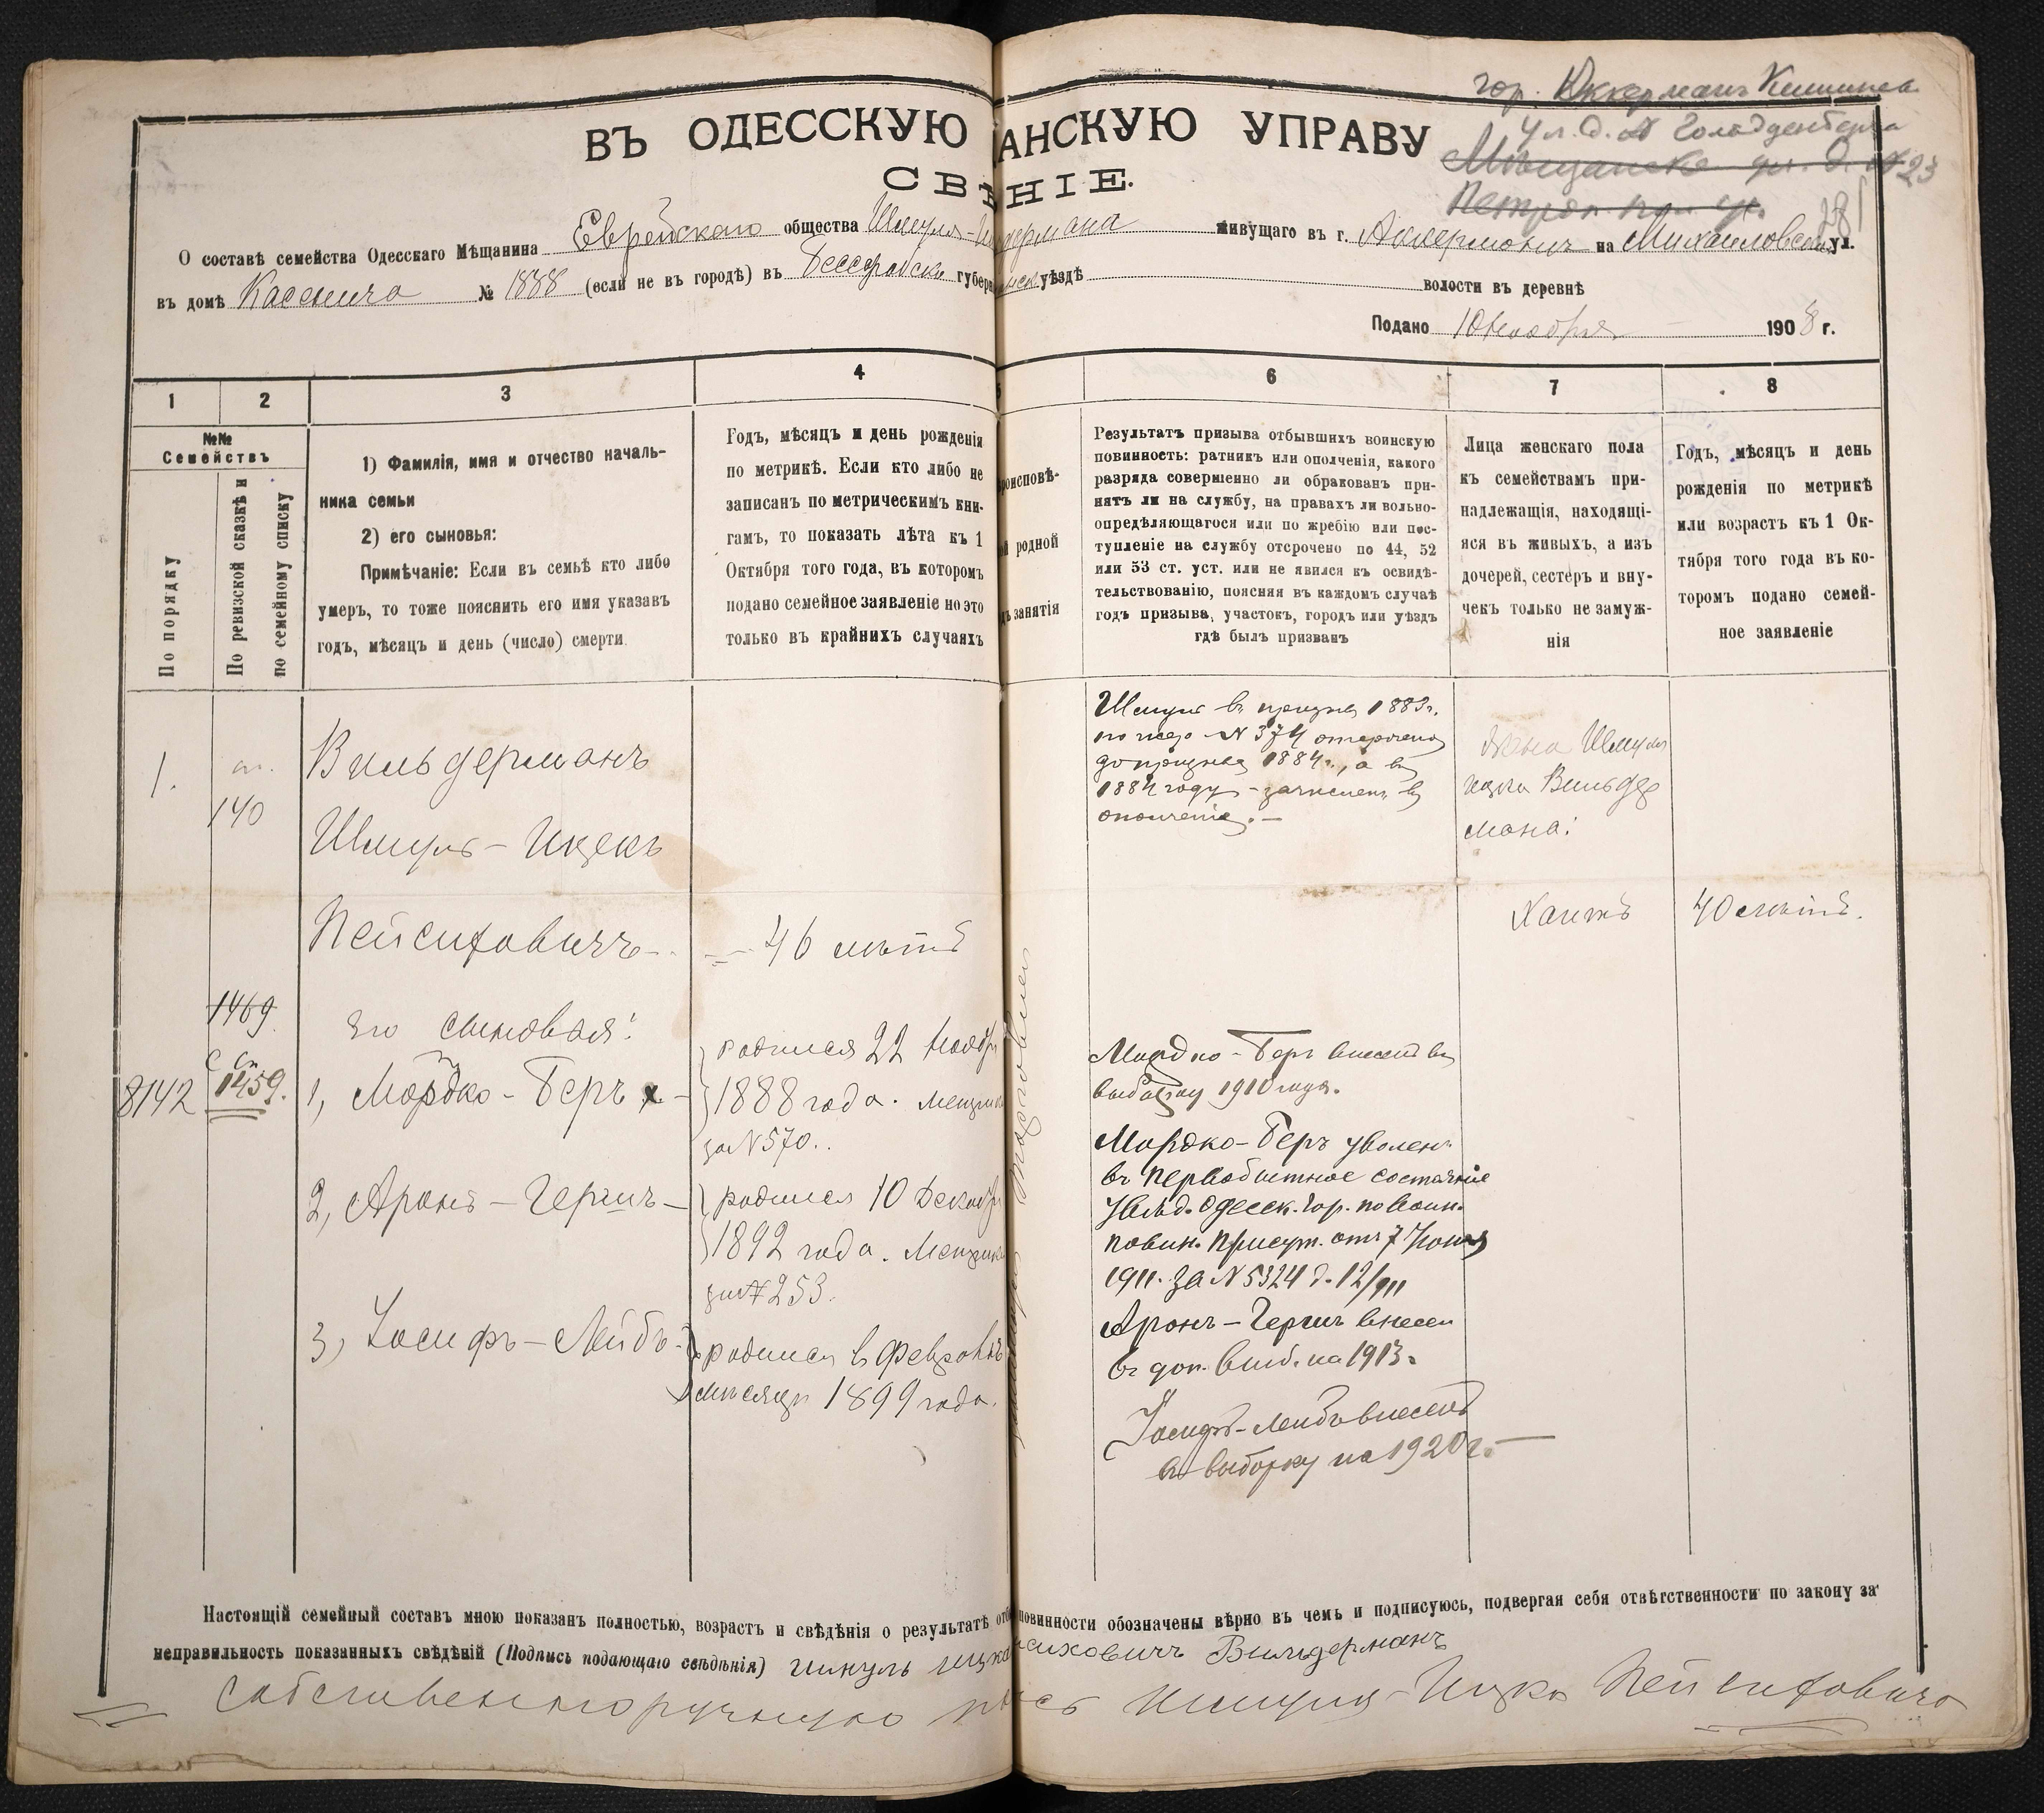 гор. Аккерманъ Кишинев.
ул. д.
ВЪ ОДЕССКУЮ АНСКУЮ УПРАВУ
Мѣщанска ул. д. № 23
СВѢ НІЕ.
О составѣ семейства Одесскаго Мѣщанина Еврейскаго общества Шмуля-И дермана живущаго въ г. Аккерманъ на Михайловской ул.
въ домѣ № 1888 (если не въ городѣ) въ Бессарабск. губерн уѣздѣ волости въ деревнѣ
Подано 10 Ноября 1908 г.
1 2 3 4 5 6 7 8
№№
Семействъ
По порядку
По ревизской сказкѣ и
по семейному списку
1) Фамилія, имя и отчество началь-
ника семьи
2) его сыновья:
Примѣчаніе: Если въ семьѣ кто либо
умеръ, то тоже пояснить его имя указавъ
годъ, мѣсяцъ и день (число) смерти.
Годъ, мѣсяцъ и день рожденія
по метрикѣ. Если кто либо не
записанъ по метрическимъ кни-
гамъ, то показать лѣта къ 1
Октября того года, въ которомъ
подано семейное заявленіе но это
только въ крайнихъ случаяхъ
роисповѣ-
й родной
ъ занятія
Результатъ призыва отбывшихъ воинскую
повинность: ратникъ или ополченія, какого
разряда совершенно ли обракованъ при-
нятъ ли на службу, на правахъ ли вольно-
опредѣляющагося или по жребію или пос-
тупленіе на службу отсрочено по 44, 52
или 53 ст. уст. или не явился къ освидѣ-
тельствованію, поясняя въ каждомъ случаѣ
годъ призыва, участокъ, городъ или уѣздъ
гдѣ былъ призванъ
Лица женскаго пола
къ семействамъ при-
надлежащія, находящі-
яся въ живыхъ, а изъ
дочерей, сестеръ и вну-
чекъ только не замуж-
нія
Годъ, мѣсяцъ и день
рожденія по метрикѣ
или возрастъ къ 1 Ок-
тября того года въ ко-
торомъ подано семей-
ное заявленіе
1.
140
Вильдерманъ
Шмуль-Ицекъ
Пейсиховичъ -
46 лѣтъ
Шмуль въ призывъ 1883 г.
по жер. № 374 отсрочено
до призыва 1884 г., а въ
1884 году - зачисленъ въ
ополченіе. -
Жена Шмуля
Ицка Вильдер
мана:
40 лѣтъ.
1469
8142
сп
1459.
Его сыновья:
1, Мордко-Беръ -
родился 22 Ноябр
1888 года. Метрика
за № 570.
2, Аронъ-Гершъ -
родился 10 Декабр
1892 года. Метрика
за № 253.
3, Іосифъ-Лейбъ -
родился въ Февралѣ
мѣсяцѣ 1899 года.
Мордко-Беръ внесенъ въ
выборку 1910 года.
Мордко-Беръ уволенъ
въ первобытное состояніе
увѣд. Одесск. Гор. по воин.
повин. Присут. отъ 7 Іюня
1911. за № 5324 д. 12/911
Аронъ-Гершъ внесен
въ доп. выб. на 1913.
Іосифъ-Лейбъ внесенъ
въ выборку на 1920 г. -
Настоящій семейный составъ мною показанъ полностью, возрастъ и свѣдѣнія о результатѣ отб повинности обозначены вѣрно въ чемъ и подписуюсь, подвергая себя отвѣтственности по закону за
неправильность показанныхъ свѣдѣній (Подпись подающаго свѣдѣнія) Шмуль Ицко сиховичъ Вильдерманъ
Собственноручную по сь Шмуля-Ицка Пейсиховича